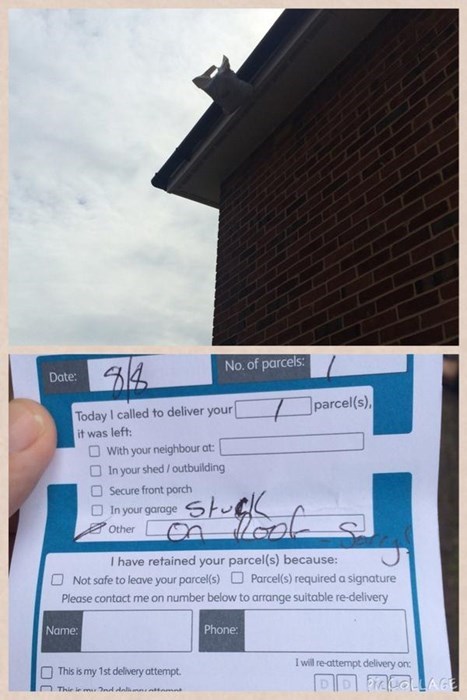 Date: 8/8 No. of parcels: 1
Today I called to deliver your 1 parcel(s),
it was left:
With your neighbour at:
In your shed / outbuilding
Secure front porch
In your garage Stuck
Other on Roof - Sorry!
I have retained your parcel(s) because:
Not safe to leave your parcel(s) Parcel(s) required a signature
Please contact me on number below to arrange suitable re-delivery
Name: Phone:
I will re-attempt delivery on:
This is my 1st delivery attempt.
D D
This is my 2nd delivery attempt